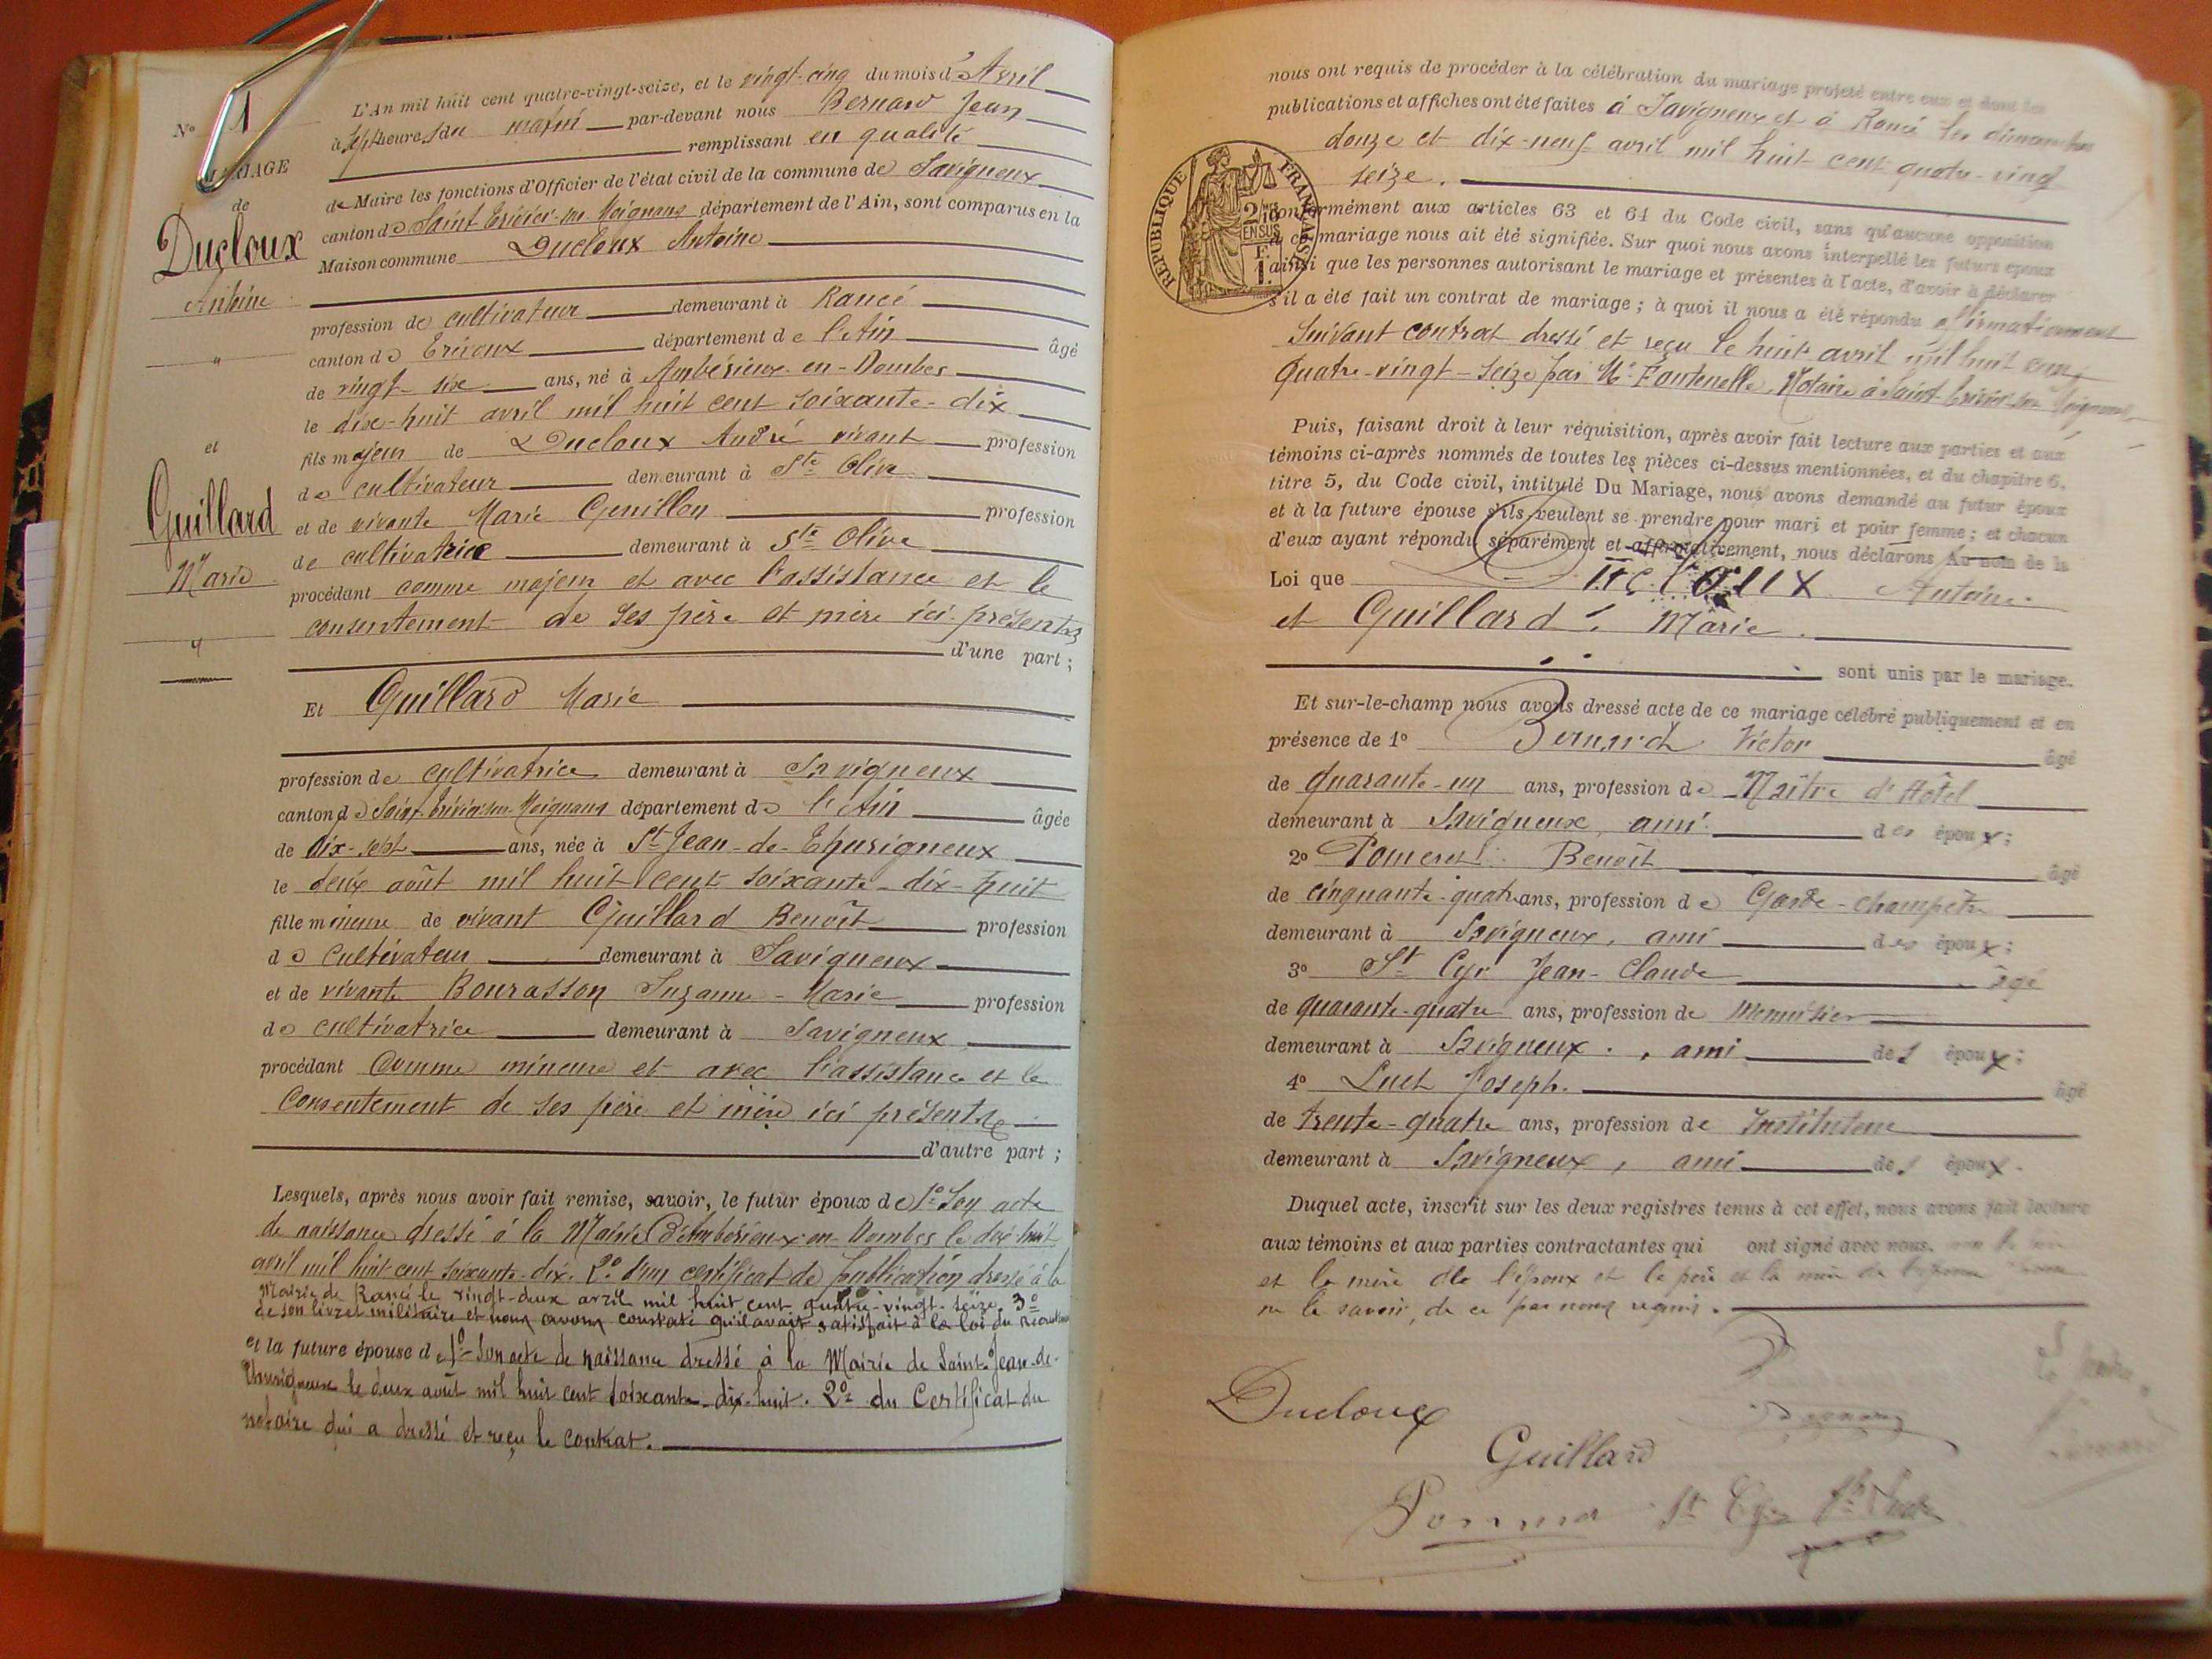 L'An mil huit cent quatre-vingt-seize, et le vingt-cinq du mois d'Avril
N° 1
à sept heures du matin par-devant nous Bernard Jean
remplissant en qualité
MARIAGE
de Maire les fonctions d'Officier de l'état civil de la commune de Savigneux
de
canton de Saint Trivier-sur-Moignans département de l'Ain, sont comparus en la
Ducloux
Maison commune Ducloux Antoine
Antoine
profession de cultivateur demeurant à Rancé
"
canton de Trévoux département de l'Ain âgé
de vingt-six ans, né à Ambérieux-en-Dombes
le dix-huit avril mil huit cent soixante-dix
et
fils majeur de Ducloux André vivant profession
de cultivateur demeurant à Ste Olive
Guillard
et de vivante Marie Genillon profession
de cultivatrice demeurant à Ste Olive
Marie
procédant comme majeur et avec l'assistance et le
consentement de ses père et mère ici présents
"
d'une part ;
Et Guillard Marie
profession de cultivatrice demeurant à Savigneux
canton de Saint-Trivier-sur-Moignans département de l'Ain âgée
de dix-sept ans, née à St Jean-de-Thurigneux
le deux août mil huit cent soixante-dix-huit
fille mineure de vivant Guillard Benoît profession
de cultivateur demeurant à Savigneux
et de vivante Bourasson Suzanne-Marie profession
de cultivatrice demeurant à Savigneux
procédant comme mineure et avec l'assistance et le
Consentement de ses père et mère ici présents
d'autre part ;
Lesquels, après nous avoir fait remise, savoir, le futur époux de 1° Son acte
de naissance dressé à la Mairie d'Ambérieux-en-Dombes le dix-huit
avril mil huit cent soixante-dix. 2° d'un certificat de publication dressé à la
Mairie de Rancé le vingt-deux avril mil huit cent quatre-vingt-seize. 3°
de son livret militaire et nous avons constaté qu'il avait satisfait à la loi du recrutement
et la future épouse de 1° Son acte de naissance dressé à la Mairie de Saint-Jean-de-
Thurigneux le deux août mil huit cent soixante-dix-huit. 2° du Certificat du
notaire qui a dressé et reçu le contrat.
nous ont requis de procéder à la célébration du mariage projeté entre eux et dont les
publications et affiches ont été faites à Savigneux et à Rancé les dimanches
douze et dix-neuf avril mil huit cent quatre-vingt
seize.
REPUBLIQUE FRANÇAISE
2/10 EN SUS
1 F.
Conformément aux articles 63 et 64 du Code civil, sans qu'aucune opposition
à ce mariage nous ait été signifiée. Sur quoi nous avons interpellé les futurs époux
ainsi que les personnes autorisant le mariage et présentes à l'acte, d'avoir à déclarer
s'il a été fait un contrat de mariage ; à quoi il nous a été répondu affirmativement
Suivant contrat dressé et reçu le huit avril mil huit cent
quatre-vingt-seize par Me Fontenelle, Notaire à Saint-Trivier-sur-Moignans
Puis, faisant droit à leur réquisition, après avoir fait lecture aux parties et aux
témoins ci-après nommés de toutes les pièces ci-dessus mentionnées, et du chapitre 6,
titre 5, du Code civil, intitulé Du Mariage, nous avons demandé au futur époux
et à la future épouse s'ils veulent se prendre pour mari et pour femme ; et chacun
d'eux ayant répondu séparément et affirmativement, nous déclarons Au nom de la
Loi que Ducloux Antoine
et Guillard Marie.
sont unis par le mariage.
Et sur-le-champ nous avons dressé acte de ce mariage célébré publiquement et en
présence de 1° Bernard Victor âgé
de quarante-un ans, profession de Maître d'Hôtel
demeurant à Savigneux, ami des époux ;
2° Pomeret Benoît âgé
de cinquante-quatre ans, profession de Garde-champêtre
demeurant à Savigneux, ami des époux ;
3° St Cyr Jean-Claude âgé
de quarante-quatre ans, profession de Menuisier
demeurant à Savigneux, ami des époux ;
4° Luet Joseph. âgé
de trente-quatre ans, profession de Instituteur
demeurant à Savigneux, ami des époux.
Duquel acte, inscrit sur les deux registres tenus à cet effet, nous avons fait lecture
aux témoins et aux parties contractantes qui ont signé avec nous.
et la mère de l'époux et le père et la mère de l'épouse
ne le savoir, de ce par nous requis.
Ducloux
Bernard
Guillard
St Cyr